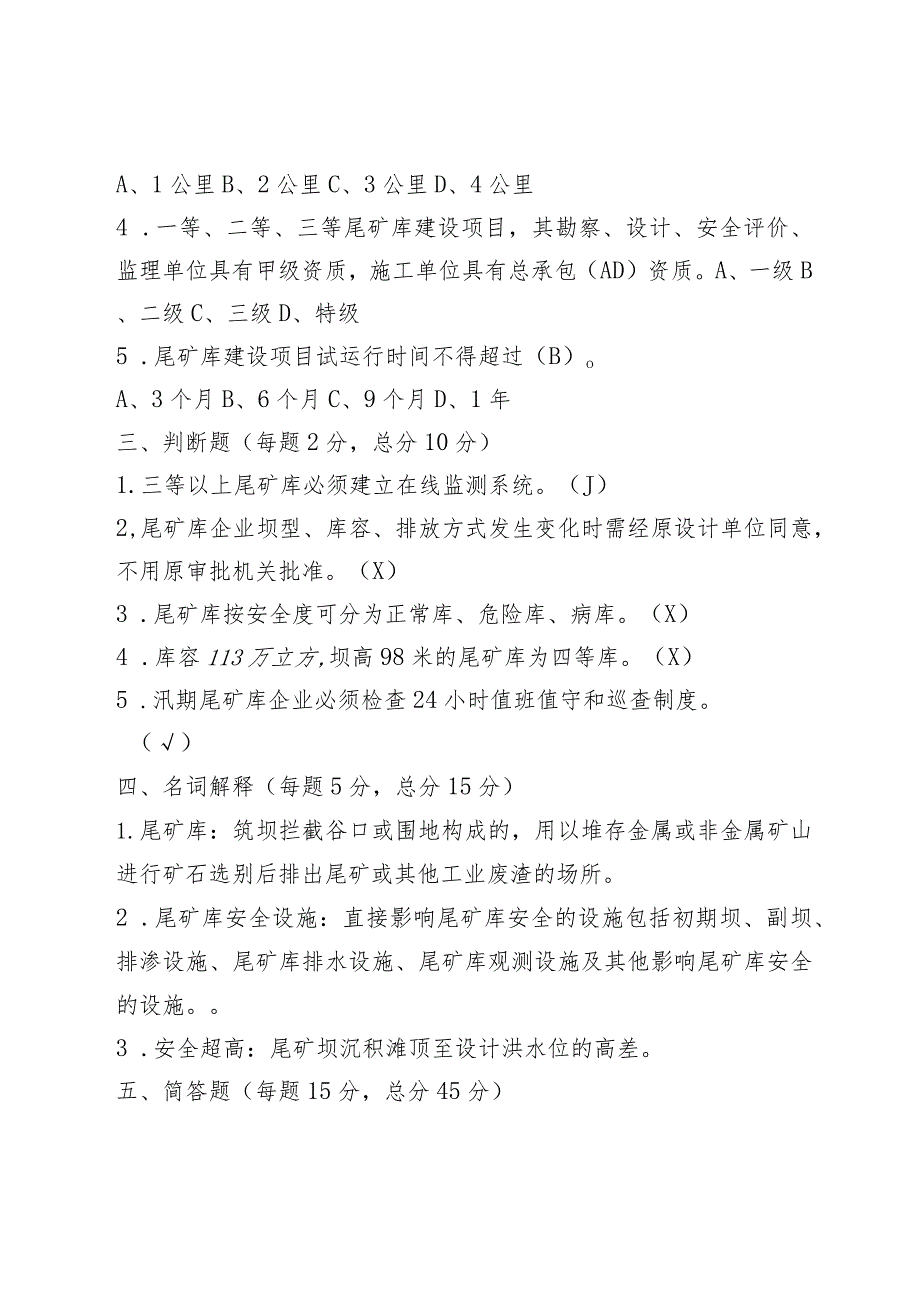 A、1公里B、2公里C、3公里D、4公里
4 .一等、二等、三等尾矿库建设项目，其勘察、设计、安全评价、
监理单位具有甲级资质，施工单位具有总承包（AD）资质。A、一级B
、二级C、三级D、特级
5 .尾矿库建设项目试运行时间不得超过（B）。
A、3个月B、6个月C、9个月D、1年
三、判断题（每题2分，总分10分）
1.三等以上尾矿库必须建立在线监测系统。（J）
2,尾矿库企业坝型、库容、排放方式发生变化时需经原设计单位同意，
不用原审批机关批准。（X）
3 .尾矿库按安全度可分为正常库、危险库、病库。（X）
4 .库容113万立方,坝高98米的尾矿库为四等库。（X）
5 .汛期尾矿库企业必须检查24小时值班值守和巡查制度。
（√）
四、名词解释（每题5分，总分15分）
1.尾矿库：筑坝拦截谷口或围地构成的，用以堆存金属或非金属矿山
进行矿石选别后排出尾矿或其他工业废渣的场所。
2 .尾矿库安全设施：直接影响尾矿库安全的设施包括初期坝、副坝、
排渗设施、尾矿库排水设施、尾矿库观测设施及其他影响尾矿库安全
的设施。。
3 .安全超高：尾矿坝沉积滩顶至设计洪水位的高差。
五、简答题（每题15分，总分45分）